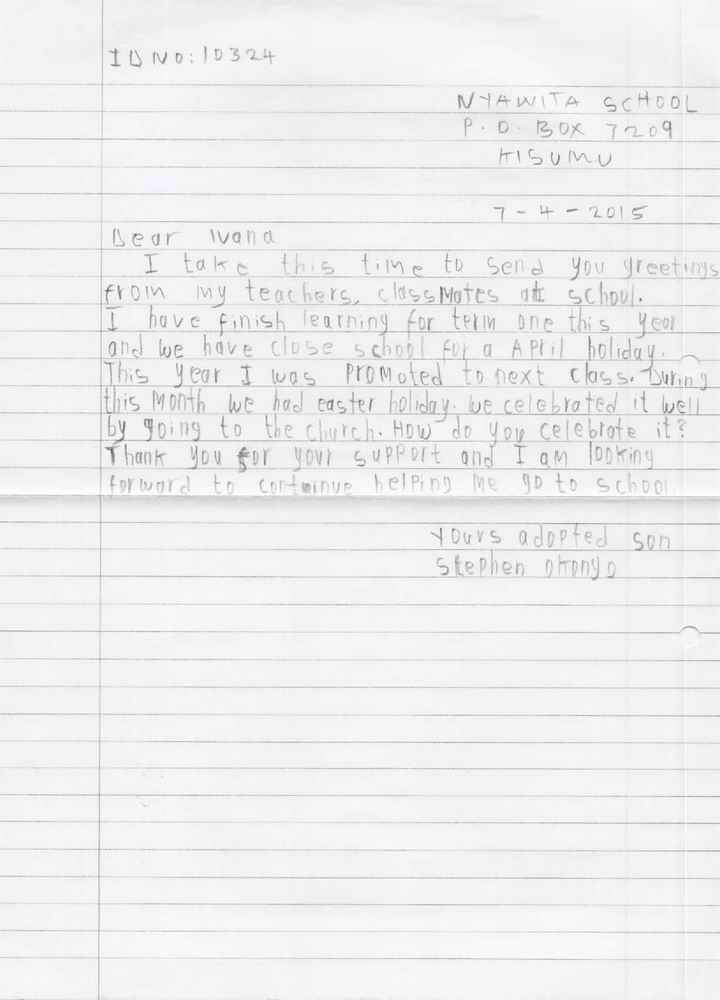 ID NO: 10324
NYAWITA SCHOOL
P.O. BOX 7209
KISUMU
7-4-2015
Dear Ivana
I take this time to send you greetings
from my teachers, classmates at school.
I have finish learning for term one this year
and we have close school for a April holiday.
This year I was promoted to next class. During
this month we had easter holiday. we celebrated it well
by going to the church. How do you celebrate it?
Thank you for your support and I am looking
forward to continue helping me go to school
yours adopted son
Stephen Okonyo